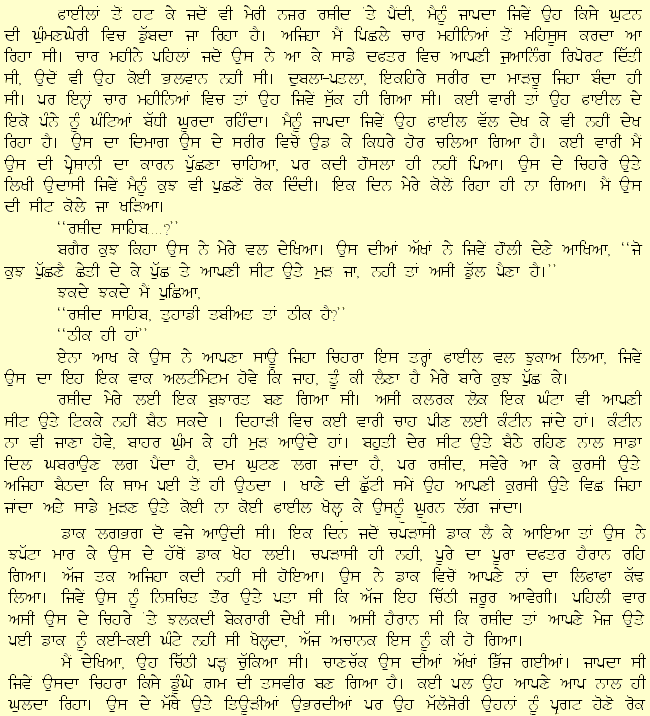 ਫਾਈਲਾਂ ਤੋਂ ਹਟ ਕੇ ਜਦੋਂ ਵੀ ਮੇਰੀ ਨਜਰ ਰਸ਼ੀਦ 'ਤੇ ਪੈਦੀ, ਮੈਨੂੰ ਜਾਪਦਾ ਜਿਵੇਂ ਉਹ ਕਿਸੇ ਘੁਟਨ
ਦੀ ਘੁੰਮਣਘੇਰੀ ਵਿਚ ਡੁੱਬਦਾ ਜਾ ਰਿਹਾ ਹੈ। ਅਜਿਹਾ ਮੈਂ ਪਿਛਲੇ ਚਾਰ ਮਹੀਨਿਆਂ ਤੋਂ ਮਹਿਸੂਸ ਕਰਦਾ ਆ
ਰਿਹਾ ਸੀ। ਚਾਰ ਮਹੀਨੇ ਪਹਿਲਾਂ ਜਦੋਂ ਉਸ ਨੇ ਆ ਕੇ ਸਾਡੇ ਦਫਤਰ ਵਿਚ ਆਪਣੀ ਜੁਆਨਿੰਗ ਰਿਪੋਰਟ ਦਿੱਤੀ
ਸੀ, ਉਦੋਂ ਵੀ ਉਹ ਕੋਈ ਭਲਵਾਨ ਨਹੀ ਸੀ। ਦੁਬਲਾ-ਪਤਲਾ, ਇਕਹਿਰੇ ਸਰੀਰ ਦਾ ਮਾੜਚੂ ਜਿਹਾ ਬੰਦਾ ਹੀ
ਸੀ। ਪਰ ਇਨ੍ਹਾਂ ਚਾਰ ਮਹੀਨਿਆਂ ਵਿਚ ਤਾਂ ਉਹ ਜਿਵੇਂ ਸੁੱਕ ਹੀ ਗਿਆ ਸੀ। ਕਈ ਵਾਰੀ ਤਾਂ ਉਹ ਫਾਈਲ ਦੇ
ਇਕੋ ਪੰਨੇ ਨੂੰ ਘੰਟਿਆਂ ਬੱਧੀ ਘੂਰਦਾ ਰਹਿੰਦਾ। ਮੈਨੂੰ ਜਾਪਦਾ ਜਿਵੇਂ ਉਹ ਫਾਈਲ ਵੱਲ ਦੇਖ ਕੇ ਵੀ ਨਹੀਂ ਦੇਖ
ਰਿਹਾ ਹੈ। ਉਸ ਦਾ ਦਿਮਾਗ ਉਸ ਦੇ ਸਰੀਰ ਵਿਚੋਂ ਉਡ ਕੇ ਕਿਧਰੇ ਹੋਰ ਚਲਿਆ ਗਿਆ ਹੈ। ਕਈ ਵਾਰੀ ਮੈਂ
ਉਸ ਦੀ ਪ੍ਰੇਸ਼ਾਨੀ ਦਾ ਕਾਰਨ ਪੁੱਛਣਾ ਚਾਹਿਆ, ਪਰ ਕਦੀ ਹੌਸਲਾ ਹੀ ਨਹੀਂ ਪਿਆ। ਉਸ ਦੇ ਚਿਹਰੇ ਉਤੇ
ਲਿਖੀ ਉਦਾਸੀ ਜਿਵੇਂ ਮੈਨੂੰ ਕੁਝ ਵੀ ਪੁਛਣੋਂ ਰੋਕ ਦਿੰਦੀ। ਇਕ ਦਿਨ ਮੇਰੇ ਕੋਲੋਂ ਰਿਹਾ ਹੀ ਨਾ ਗਿਆ। ਮੈਂ ਉਸ
ਦੀ ਸੀਟ ਕੋਲੇ ਜਾ ਖੜਿਆ।
''ਰਸ਼ੀਦ ਸਾਹਿਬ....?''
ਬਗੈਰ ਕੁਝ ਕਿਹਾ ਉਸ ਨੇ ਮੇਰੇ ਵਲ ਦੇਖਿਆ। ਉਸ ਦੀਆਂ ਅੱਖਾਂ ਨੇ ਜਿਵੇਂ ਹੌਲੀ ਦੇਣੇ ਆਖਿਆ, ''ਜੋ
ਕੁਝ ਪੁੱਛਣੈ ਛੇਤੀ ਦੇ ਕੇ ਪੁੱਛ ਤੇ ਆਪਣੀ ਸੀਟ ਉਤੇ ਮੁੜ ਜਾ, ਨਹੀਂ ਤਾਂ ਅਸੀ ਡੁੱਲ ਪੈਣਾ ਹੈ।''
ਝਕਦੇ ਝਕਦੇ ਮੈਂ ਪੁਛਿਆ,
''ਰਸ਼ੀਦ ਸਾਹਿਬ, ਤੁਹਾਡੀ ਤਬੀਅਤ ਤਾਂ ਠੀਕ ਹੈ?''
''ਠੀਕ ਹੀ ਹਾਂ''
ਏਨਾ ਆਖ ਕੇ ਉਸ ਨੇ ਆਪਣਾ ਸਾਊ ਜਿਹਾ ਚਿਹਰਾ ਇਸ ਤਰ੍ਹਾਂ ਫਾਈਲ ਵਲ ਝੁਕਾਅ ਲਿਆ, ਜਿਵੇਂ
ਉਸ ਦਾ ਇਹ ਇਕ ਵਾਕ ਅਲਟੀਮੇਟਮ ਹੋਵੇ ਕਿ ਜਾਹ, ਤੂੰ ਕੀ ਲੈਣਾ ਹੈ ਮੇਰੇ ਬਾਰੇ ਕੁਝ ਪੁੱਛ ਕੇ।
ਰਸ਼ੀਦ ਮੇਰੇ ਲਈ ਇਕ ਬੁਝਾਰਤ ਬਣ ਗਿਆ ਸੀ। ਅਸੀ ਕਲਰਕ ਲੋਕ ਇਕ ਘੰਟਾ ਵੀ ਆਪਣੀ
ਸੀਟ ਉਤੇ ਟਿਕਕੇ ਨਹੀਂ ਬੈਠ ਸਕਦੇ । ਦਿਹਾੜੀ ਵਿਚ ਕਈ ਵਾਰੀ ਚਾਹ ਪੀਣ ਲਈ ਕੰਟੀਨ ਜਾਂਦੇ ਹਾਂ। ਕੰਟੀਨ
ਨਾ ਵੀ ਜਾਣਾ ਹੋਵੇ, ਬਾਹਰ ਘੁੰਮ ਕੇ ਹੀ ਮੁੜ ਆਉਂਦੇ ਹਾਂ। ਬਹੁਤੀ ਦੇਰ ਸੀਟ ਉਤੇ ਬੈਠੇ ਰਹਿਣ ਨਾਲ ਸਾਡਾ
ਦਿਲ ਘਬਰਾਉਣ ਲਗ ਪੈਂਦਾ ਹੈ, ਦਮ ਘੁਟਣ ਲਗ ਜਾਂਦਾ ਹੈ, ਪਰ ਰਸ਼ੀਦ, ਸਵੇਰੇ ਆ ਕੇ ਕੁਰਸੀ ਉਤੇ
ਅਜਿਹਾ ਬੈਠਦਾ ਕਿ ਸ਼ਾਮ ਪਈ ਤੋਂ ਹੀ ਉਠਦਾ । ਖਾਣੇ ਦੀ ਛੁੱਟੀ ਸਮੇਂ ਉਹ ਆਪਣੀ ਕੁਰਸੀ ਉਤੇ ਵਿਛ ਜਿਹਾ
ਜਾਂਦਾ ਅਤੇ ਸਾਡੇ ਮੁੜਣ ਉਤੇ ਕੋਈ ਨਾ ਕੋਈ ਫਾਈਲ ਖੋਲ੍ਹ ਕੇ ਉਸਨੂੰ ਘੂਰਨ ਲੱਗ ਜਾਂਦਾ।
ਡਾਕ ਲਗਭਗ ਦੋ ਵਜੇ ਆਉਂਦੀ ਸੀ। ਇਕ ਦਿਨ ਜਦੋਂ ਚਪੜਾਸੀ ਡਾਕ ਲੈ ਕੇ ਆਇਆ ਤਾਂ ਉਸ ਨੇ
ਝਪੱਟਾ ਮਾਰ ਕੇ ਉਸ ਦੇ ਹੱਥੋਂ ਡਾਕ ਖੋਹ ਲਈ। ਚਪੜਾਸੀ ਹੀ ਨਹੀ, ਪੂਰੇ ਦਾ ਪੂਰਾ ਦਫਤਰ ਹੈਰਾਨ ਰਹਿ
ਗਿਆ। ਅੱਜ ਤਕ ਅਜਿਹਾ ਕਦੀ ਨਹੀ ਸੀ ਹੋਇਆ। ਉਸ ਨੇ ਡਾਕ ਵਿਚੋਂ ਆਪਣੇ ਨਾਂ ਦਾ ਲਿਫਾਫਾ ਕੱਢ
ਲਿਆ। ਜਿਵੇਂ ਉਸ ਨੂੰ ਨਿਸਚਿਤ ਤੌਰ ਉਤੇ ਪਤਾ ਸੀ ਕਿ ਅੱਜ ਇਹ ਚਿੱਠੀ ਜ਼ਰੂਰ ਆਵੇਗੀ। ਪਹਿਲੀ ਵਾਰ
ਅਸੀ ਉਸ ਦੇ ਚਿਹਰੇ 'ਤੇ ਝਲਕਦੀ ਬੇਕਰਾਰੀ ਦੇਖੀ ਸੀ। ਅਸੀ ਹੈਰਾਨ ਸੀ ਕਿ ਰਸ਼ੀਦ ਤਾਂ ਆਪਣੇ ਮੇਜ ਉਤੇ
ਪਈ ਡਾਕ ਨੂੰ ਕਈ-ਕਈ ਘੰਟੇ ਨਹੀ ਸੀ ਖੋਲ੍ਹਦਾ, ਅੱਜ ਅਚਾਨਕ ਇਸ ਨੂੰ ਕੀ ਹੋ ਗਿਆ।
ਮੈਂ ਦੇਖਿਆ, ਉਹ ਚਿੱਠੀ ਪੜ੍ਹ ਚੁੱਕਿਆ ਸੀ। ਚਾਣਚੱਕ ਉਸ ਦੀਆਂ ਅੱਖਾਂ ਭਿੱਜ ਗਈਆਂ। ਜਾਪਦਾ ਸੀ
ਜਿਵੇਂ ਉਸਦਾ ਚਿਹਰਾ ਕਿਸੇ ਡੂੰਘੇ ਗਮ ਦੀ ਤਸਵੀਰ ਬਣ ਗਿਆ ਹੈ। ਕਈ ਪਲ ਉਹ ਆਪਣੇ ਆਪ ਨਾਲ ਹੀ
ਘੁਲਦਾ ਰਿਹਾ। ਉਸ ਦੇ ਮੱਥੇ ਉਤੇ ਤਿਊੜੀਆਂ ਉਭਰਦੀਆਂ ਪਰ ਉਹ ਮੱਲੋਜੋਰੀ ਉਹਨਾਂ ਨੂੰ ਪ੍ਰਗਟ ਹੋਣੋ ਰੋਕ